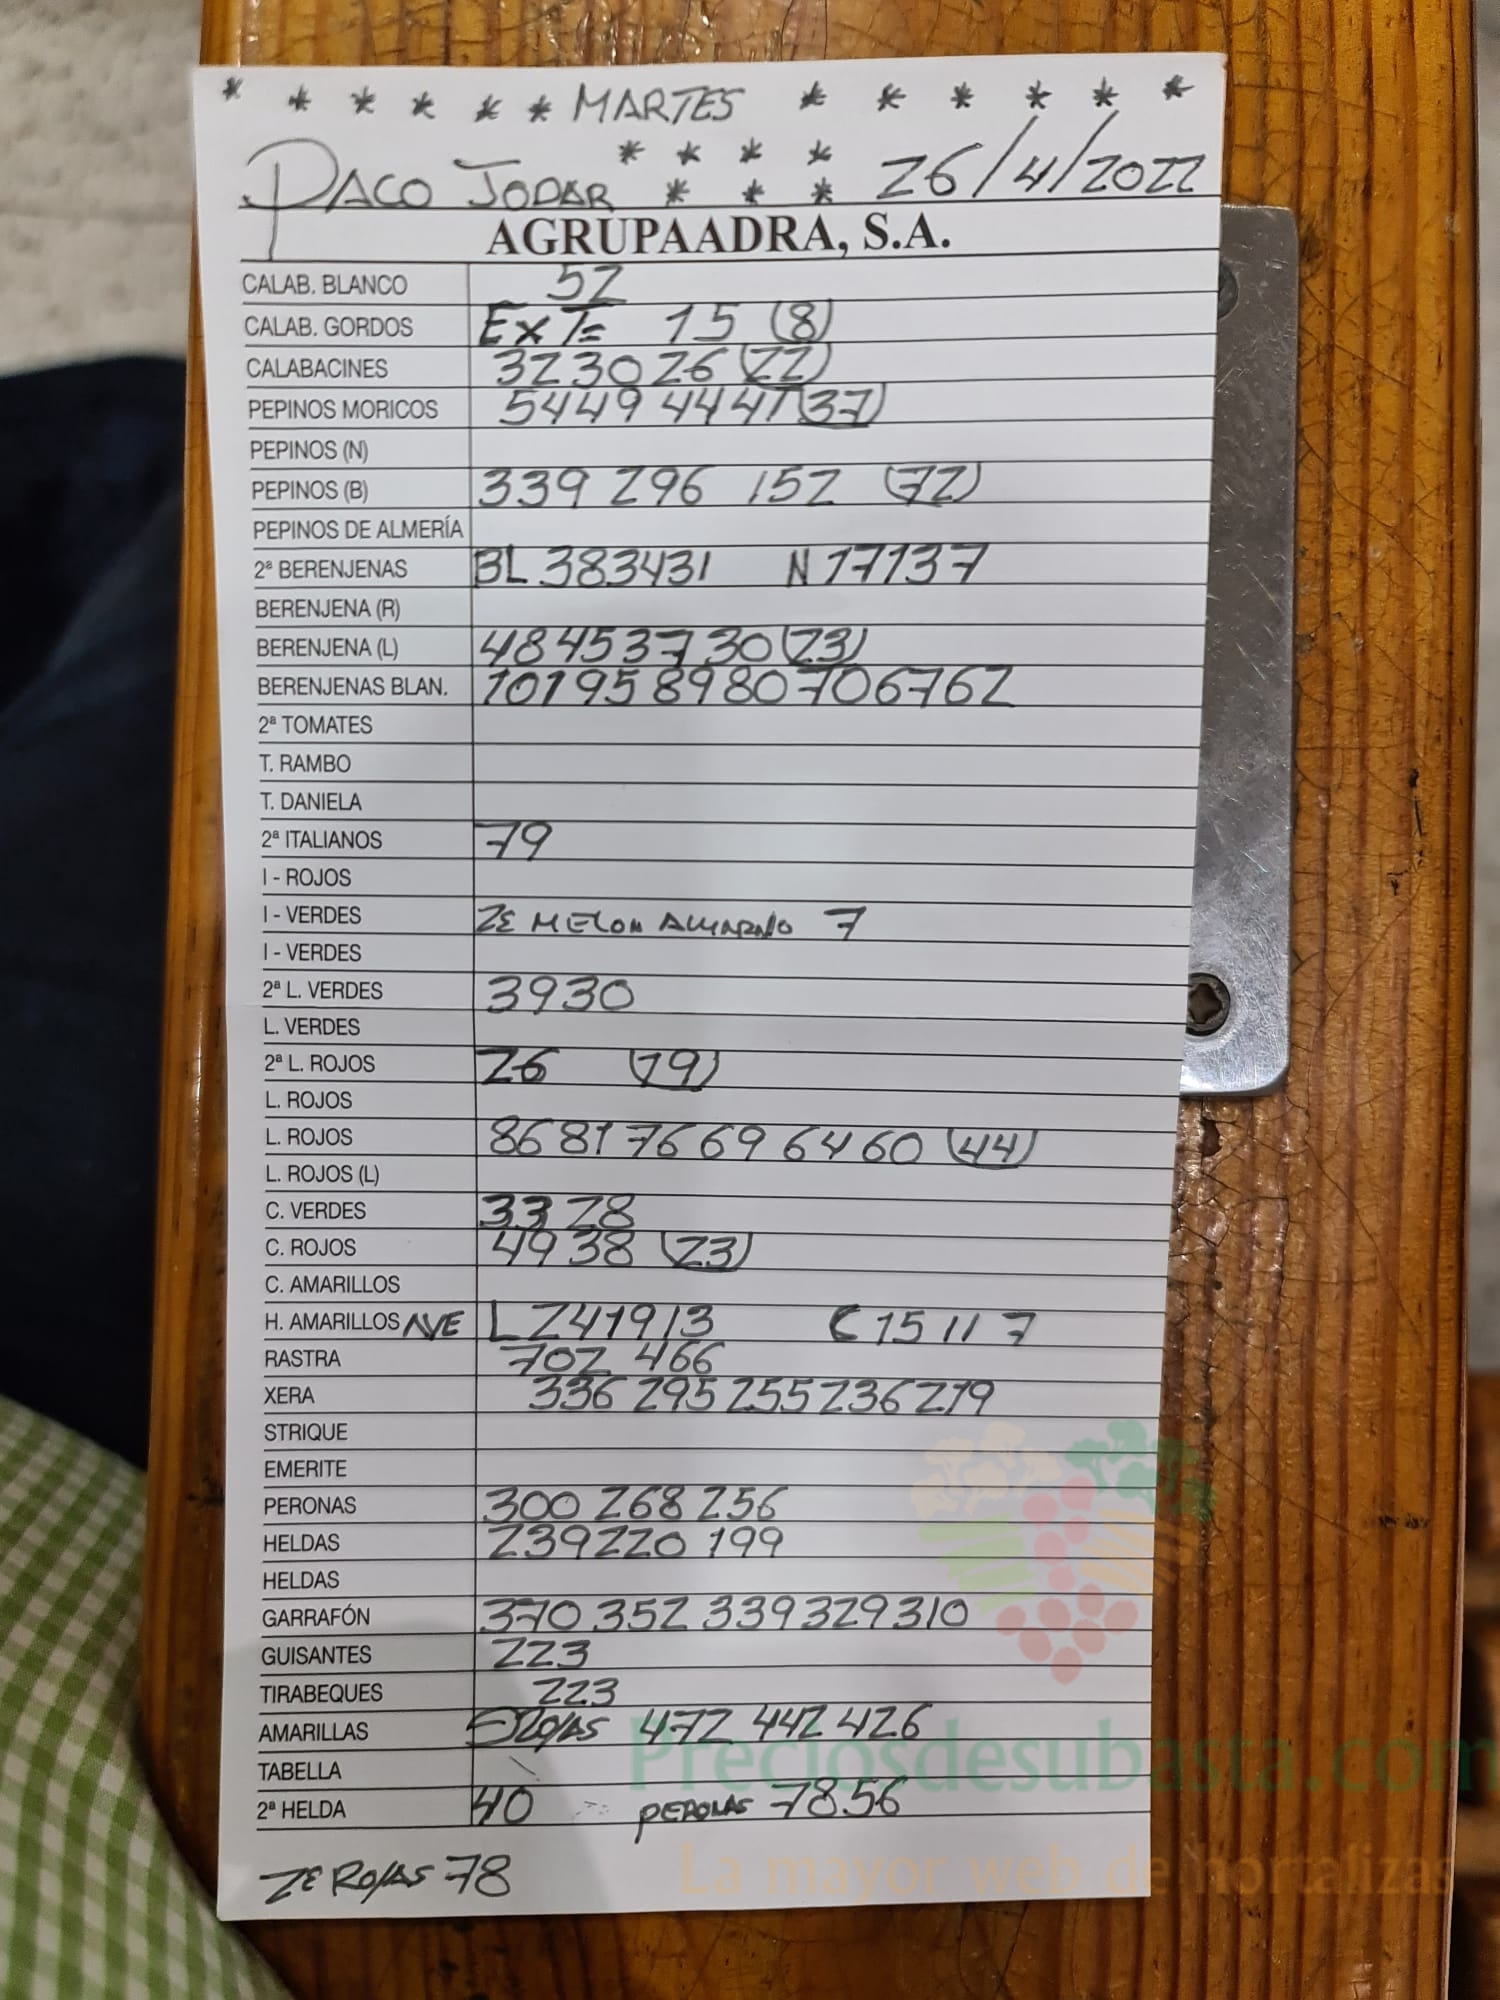 * * * * * * MARTES * * * * * *
* * * *
PACO JODAR * * * 26/4/2022
AGRUPAADRA, S.A.
CALAB. BLANCO 52
CALAB. GORDOS EXT= 15 (8)
CALABACINES 32 30 26 (22)
PEPINOS MORICOS 54 49 44 41 (37)
PEPINOS (N)
PEPINOS (B) 339 296 152 (72)
PEPINOS DE ALMERÍA
2ª BERENJENAS BL 38 34 31 N 17 13 7
BERENJENA (R)
BERENJENA (L) 48 45 37 30 (23)
BERENJENAS BLAN. 101 95 89 80 70 67 62
2ª TOMATES
T. RAMBO
T. DANIELA
2ª ITALIANOS 79
I - ROJOS
I - VERDES 2E MELON AMARILLO 7
I - VERDES
2ª L. VERDES 39 30
L. VERDES
2ª L. ROJOS 26 (19)
L. ROJOS
L. ROJOS 86 81 76 69 64 60 (44)
L. ROJOS (L)
C. VERDES 33 28
C. ROJOS 49 38 (23)
C. AMARILLOS
H. AMARILLOS AVE L 24 19 13 C 15 11 7
RASTRA 702 466
XERA 336 295 255 236 219
STRIQUE
EMERITE
PERONAS 300 268 256
HELDAS 239 220 199
HELDAS
GARRAFÓN 370 352 339 329 310
GUISANTES 223
TIRABEQUES 223
AMARILLAS ROJAS 472 442 426
TABELLA
2ª HELDA 40 PERONAS 78 56
2E ROJAS 78
Preciosdesubasta.com
La mayor web de hortalizas